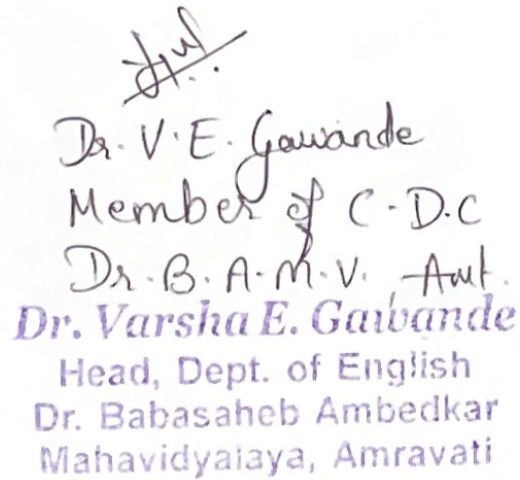 Dr. V. E. Gawande
Member of C.D.C
Dr. B. A. M. V. Amt.
Dr. Varsha E. Gawande
Head, Dept. of English
Dr. Babasaheb Ambedkar
Mahavidyalaya, Amravati